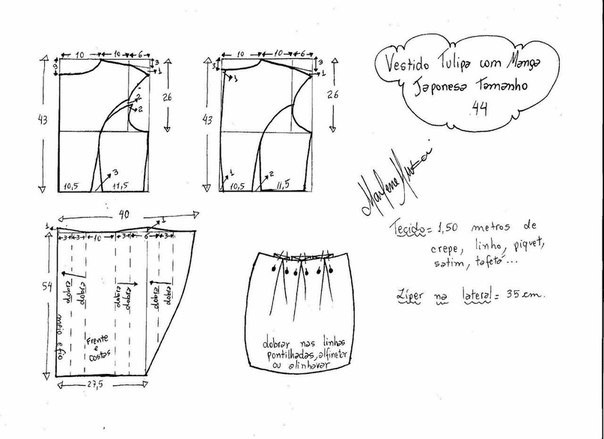 10 10 6
3
3
1
2
2
43
26
3
10,5
11,5
10 10 6
3
1
43
26
1
2
10,5
11,5
Vestido Tulipa com Manga
Japonesa Tamanho
44
Marlene Mukai
Tecido = 1,50 metros de
crepe, linho, piquet,
satim, tafetá...
Zíper na lateral = 35 cm.
40
1
1
3 3 10 3 6 3
54
dobra
dobra
dobra
dobra
dobra
dobra
meio e fio
Frente
e
costas
27,5
dobrar nas linhas
pontilhadas, alfinetar
ou alinhavar